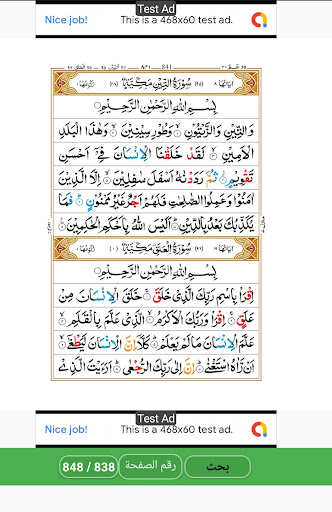 Test Ad
Nice job!
This is a 468x60 test ad.
841
سُوْرَةُ التِّيْنِ مَكِّيَّةٌ
بِسْمِ اللهِ الرَّحْمٰنِ الرَّحِيْمِ
وَالتِّيْنِ وَالزَّيْتُوْنِ ۙ وَطُوْرِ سِيْنِيْنَ ۙ وَهٰذَا الْبَلَدِ
الْاَمِيْنِ ۙ لَقَدْ خَلَقْنَا الْاِنْسَانَ فِيْٓ اَحْسَنِ
تَقْوِيْمٍ ۫ ثُمَّ رَدَدْنٰهُ اَسْفَلَ سٰفِلِيْنَ ۙ اِلَّا الَّذِيْنَ
اٰمَنُوْا وَعَمِلُوا الصّٰلِحٰتِ فَلَهُمْ اَجْرٌ غَيْرُ مَمْنُوْنٍ ؕ فَمَا
يُكَذِّبُكَ بَعْدُ بِالدِّيْنِ ؕ اَلَيْسَ اللّٰهُ بِاَحْكَمِ الْحٰكِمِيْنَ
سُوْرَةُ الْعَلَقِ مَكِّيَّةٌ
بِسْمِ اللهِ الرَّحْمٰنِ الرَّحِيْمِ
اِقْرَاْ بِاسْمِ رَبِّكَ الَّذِيْ خَلَقَ ۚ خَلَقَ الْاِنْسَانَ مِنْ
عَلَقٍ ۚ اِقْرَاْ وَرَبُّكَ الْاَكْرَمُ ۙ الَّذِيْ عَلَّمَ بِالْقَلَمِ ۙ
عَلَّمَ الْاِنْسَانَ مَا لَمْ يَعْلَمْ ؕ كَلَّآ اِنَّ الْاِنْسَانَ لَيَطْغٰٓى ۙ
اَنْ رَّاٰهُ اسْتَغْنٰى ؕ اِنَّ اِلٰى رَبِّكَ الرُّجْعٰى ؕ اَرَءَيْتَ الَّذِيْ
Test Ad
Nice job!
This is a 468x60 test ad.
بحث
رقم الصفحة
848 / 838